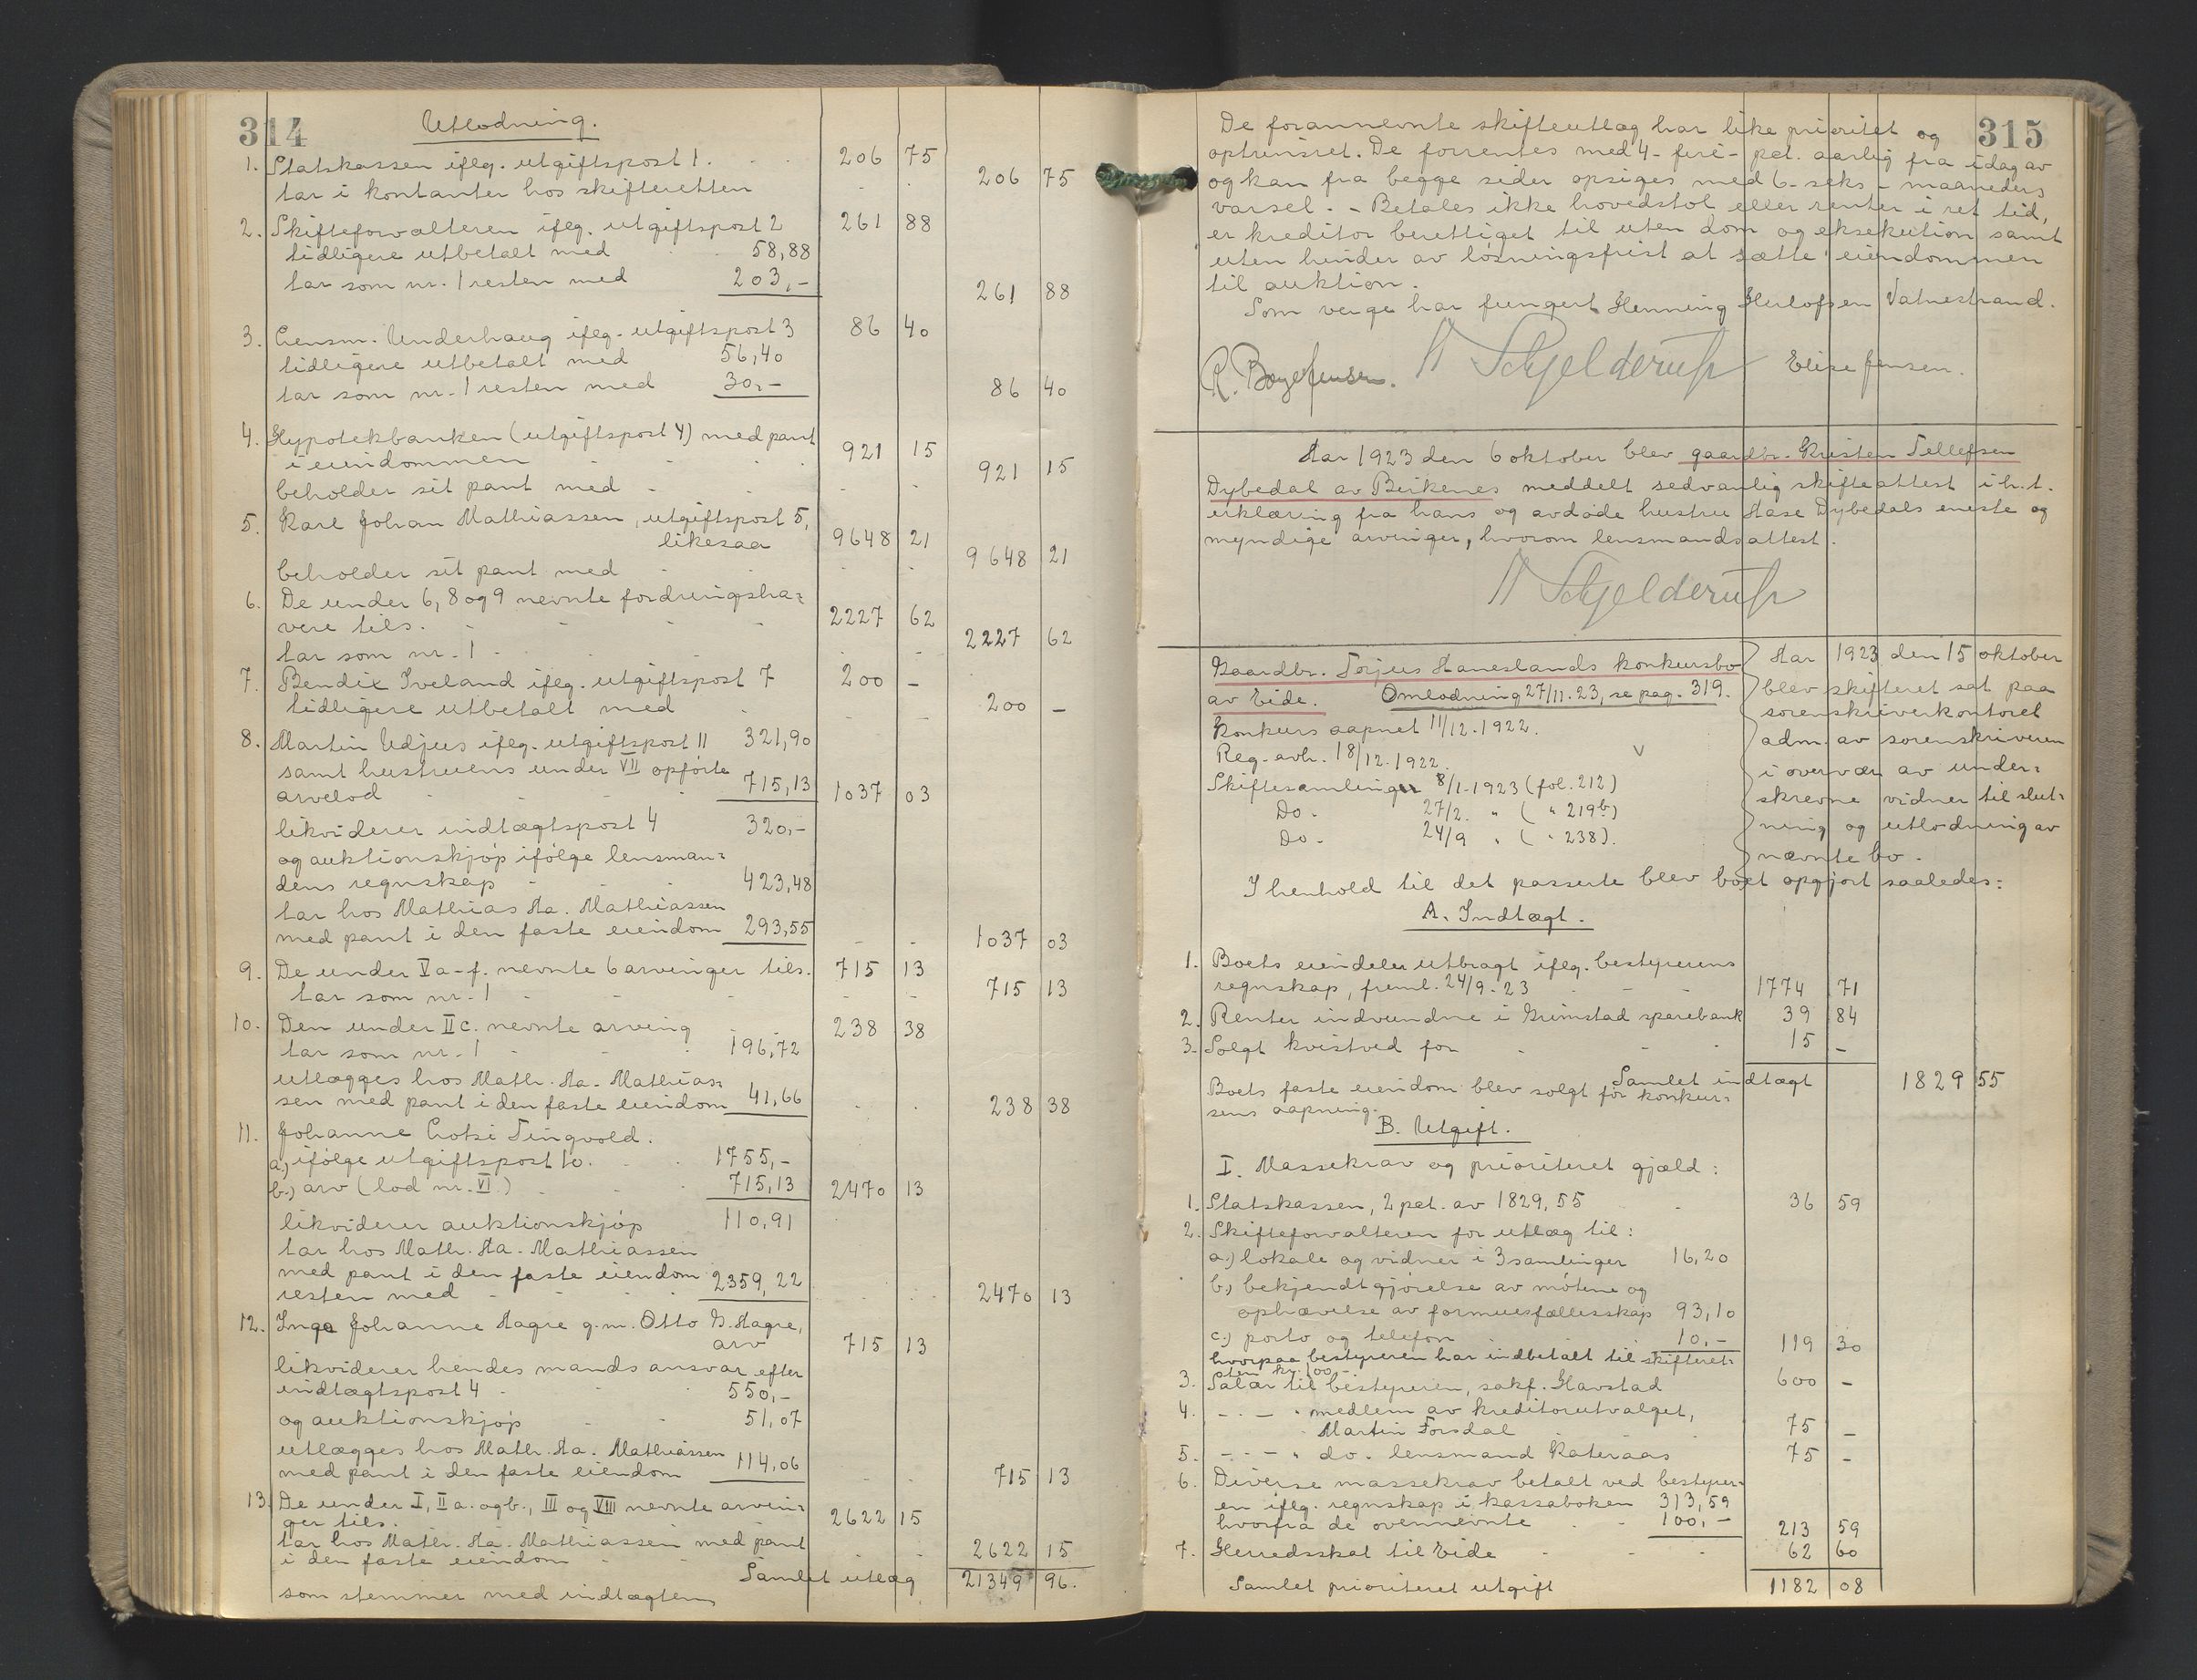 314
Utlodning.
1. Statskassen ifлg. utgiftspost 1. 206 75
tar i kontanter hos skifteretten 206 75
2. Skifteforvalteren ifølg. utgiftspost 2 261 88
tidligere utbetalt med 58,88
tar som nr. 1 resten med 203,- 261 88
3. Lensm. Underhaug ifølg. utgiftspost 3 86 40
tidligere utbetalt med 56,40
tar som nr. 1 resten med 30,- 86 40
4. Hypotekbanken (utgiftspost 4) med pant
i eiendommen 921 15
beholder sit pant med 921 15
5. Karl Johan Mathiassen, utgiftspost 5,
likesaa 9648 21
beholder sit pant med 9648 21
6. De under 6, 8 og 9 nevnte fordringsha-
vere tils. 2227 62
tar som nr. 1 2227 62
7. Bendix Iveland ifølg. utgiftspost 7 200 -
tidligere utbetalt med 200 -
8. Martin Udjus ifølg. utgiftspost 11 321,90
samt hustruens under VII opførte
arvelod 715,13 1037 03
likviderer indtægtspost 4 320,-
og auktionskjøp ifølge lensman-
dens regnskap 423,48
tar hos Mathias Aa. Mathiassen
med pant i den faste eiendom 293,55 1037 03
9. De under Va-f. nevnte 6 arvinger tils. 715 13
tar som nr. 1 715 13
10. Den under IIc. nevnte arving 238 38
tar som nr. 1 196,72
utlægges hos Math. Aa. Mathias-
sen med pant i den faste eiendom 41,66 238 38
11. Johanne Lotsi Tingvold.
a.) ifølge utgiftspost 10. 1755,-
b.) arv (lod nr. VI.) 715,13 2470 13
likviderer auktionskjøp 110,91
tar hos Math. Aa. Mathiassen
med pant i den faste eiendom
resten med 2359,22 2470 13
12. Inga Johanne Aagre g.m. Otto G. Aagre,
arv 715 13
likviderer hendes mands ansvar efter
indtægtspost 4 550,-
og auktionskjøp 51,07
utlægges hos Math. Aa. Mathiassen
med pant i den faste eiendom 114,06 715 13
13. De under I, IIa. og b., III og VIII nevnte arvin-
ger tils. 2622 15
tar hos Math. Aa. Mathiassen med pant
i den faste eiendom 2622 15
Samlet utlæg 21349 96.
som stemmer med indtægten
315
De forannevnte skifteutlæg har like prioritet og
optrinsret. De forrentes med 4 - fire - pct. aarlig fra idag av
og kan fra begge sider opsiges med 6 - seks - maaneders
varsel. - Betales ikke hovedstol eller renter i ret tid,
er kreditor berettiget til uten dom og eksekution samt
uten hinder av løsningsfrist at sætte eiendommen
til auktion.
Som verge har fungert Henning Herlofsen Vatnestrand.
R. Boye Jensen. Schjelderup Elise Jensen.
Aar 1923 den 6 oktober blev gaardbr. Kristen Tellefsen
Dybedal av Beikenes meddelt sedvanlig skifteattest i h.t.
erklæring fra hans og avdøde hustru Aase Dybedals eneste og
myndige arvinger, hvorom lensmandsattest.
Schjelderup
Gaardbr. Torjus Haneslands konkursbo
av Eide. Omlodning 27/11.23, se pag. 319.
Konkurs aapnet 11/12.1922.
Reg. avh. 18/12.1922.
Skiftesamlinger 8/1-1923 (fol. 212)
Do. 27/2. " ( " 219b)
Do. 24/9 " ( " 238).
Aar 1923 den 15 oktober
blev skifteret sat paa
sorenskriverkontoret
adm. av sorenskriveren
i overvær av under-
skrevne vidner til slut-
ning og utlodning av
nævnte bo.
I henhold til det passerte blev boet opgjort saaledes:
A. Indtægt.
1. Boets eiendeler utbragt ifølg. bestyrerens
regnskap, freml. 24/9-23 1774 71
2. Renter indvundne i Grimstad sparebank 39 84
3. Solgt kvistved for 15 -
Samlet indtægt 1829 55
Boets faste eiendom blev solgt før konkur-
sens aapning.
B. Utgift.
I. Massekrav og prioriteret gjæld:
1. Statskassen, 2 pct. av 1829,55 36 59
2. Skifteforvalteren for utlæg til:
a.) lokale og vidner i 3 samlinger 16,20
b.) bekjendtgjørelse av møtene og
ophævelse av formuesfællesskap 93,10
c.) porto og telefon 10,- 119 30
hvorpaa bestyreren har indbetalt til skifteret-
ten kr. 100.-
3. Salær til bestyreren, sakf. Havstad 600 -
4. - - - " medlem av kreditorutvalget,
Martin Forsdal 75 -
5. - - - " do. lensmand Kateraas 75 -
6. Diverse massekrav betalt ved bestyrer-
en ifølg. regnskap i kassaboken 313,59
hvorfra de ovennevnte 100,- 213 59
7. Herredsskat til Eide 62 60
Samlet prioriteret utgift 1182 08